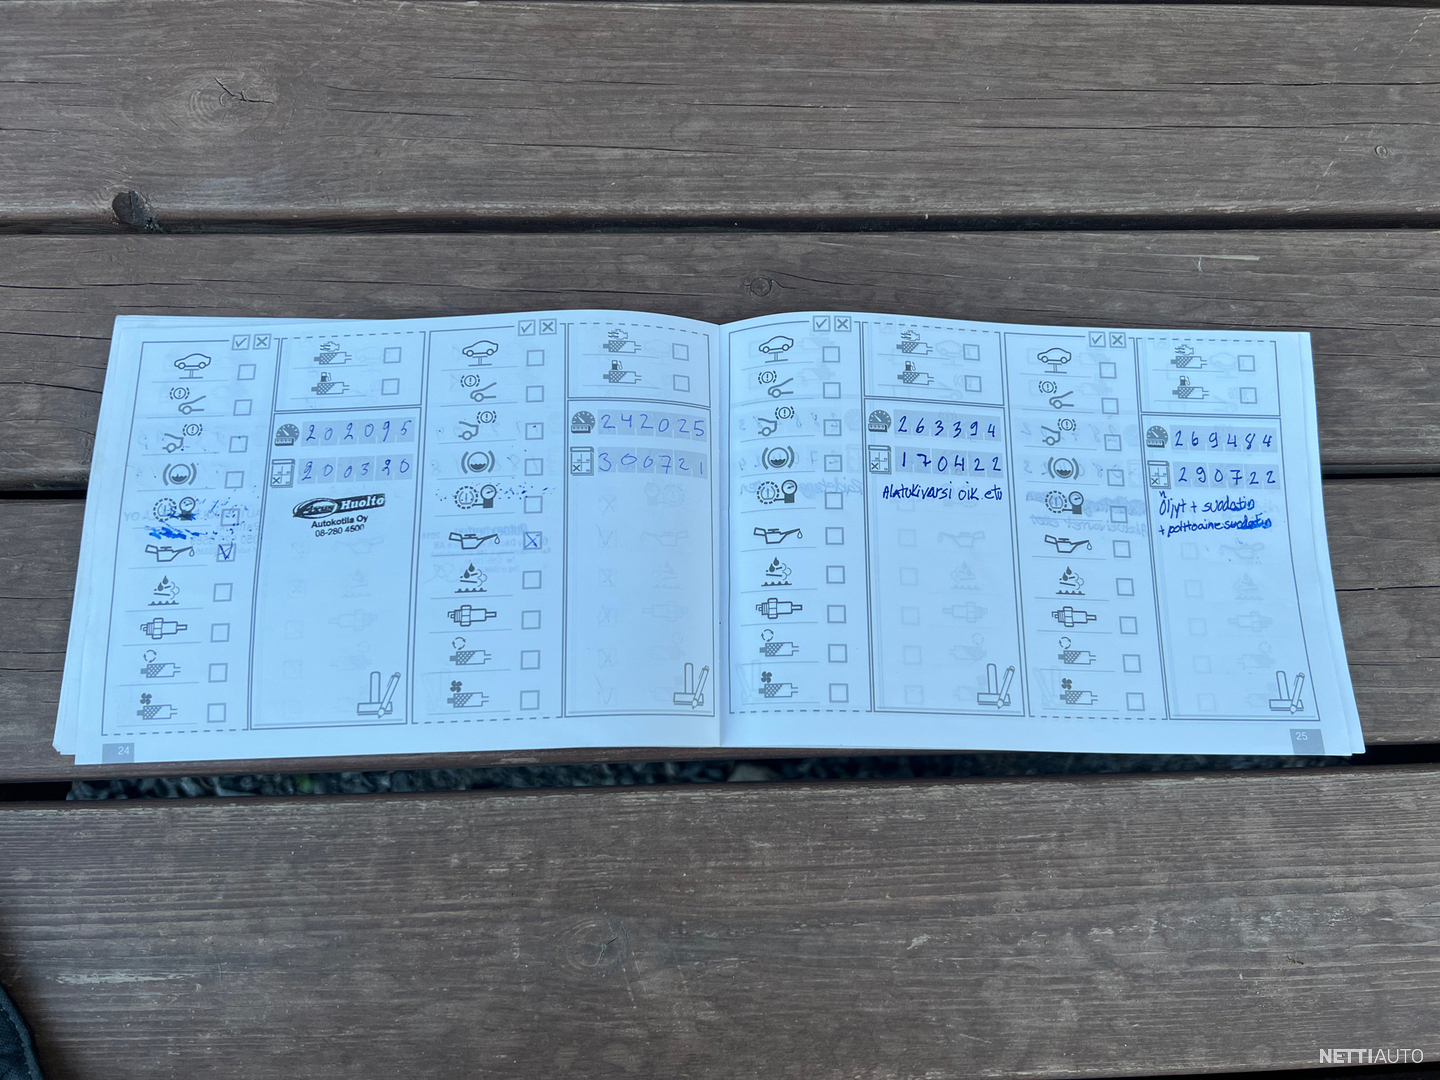 202095
200320
Huolto
Autokotila Oy
08-280 4500
242025
300721
263394
170422
Alatukivarsi oik. etu
269484
290722
Öljyt + suodatin
+ polttoaine suodatin
24
25
NETTIAUTO